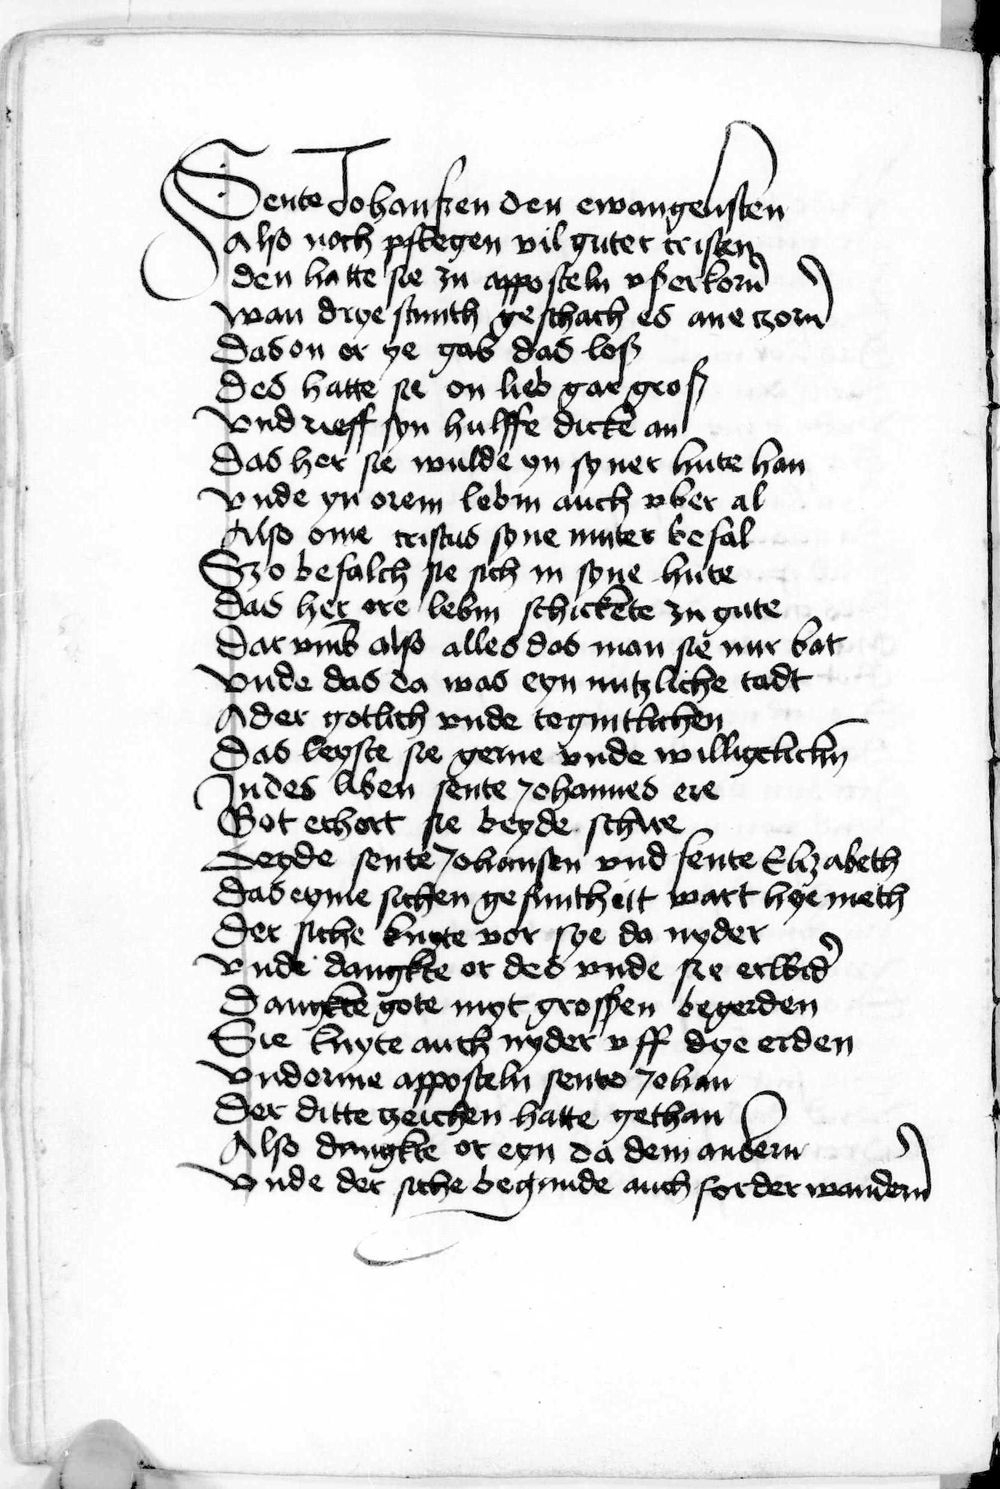 Sente Johanßen den ewangelisten
Also noch pflegen vil guter cristen
den hatte sie zu apposteln vßerkorn
wan drye stunth geschach es ane tzorn
Das on or ye gab das loß
Des hatte sie on lieb gar groß
Vnd rieff syn hulffe dicke an
Das her sie wulde yn syner hute han
Vnde yn orem lebin auch vber al
Also ome cristus syne muter befal
Szo befalch sie sich in syne hute
Das her ore lebin schickete zu gute
Dar vmb also alles das man sie nur bat
Vnde das da was eyn nutzliche tadt
Ader gotlich vnde togintlichen
Das leyste sie gerne vnde willigclichn
In des liben sente Johannes ere
Got erhort sie beyde schire
Beyde sente Johansen vnd sente Elizabeth
Das eyme sichen gesuntheit wart hye meth
Der siche knyte vor sye da nyder
Vnde dangkte or des vnde sie erwider
Dangkte gote myt grossen begerden
Sie knyte auch nyder vff dye erden
Vnd orme apposteln sente Johan
Der ditte tzeichen hatte gethan
Also dangkte or eyn da dem andern
Vnde der siche begunde auch forder wandern